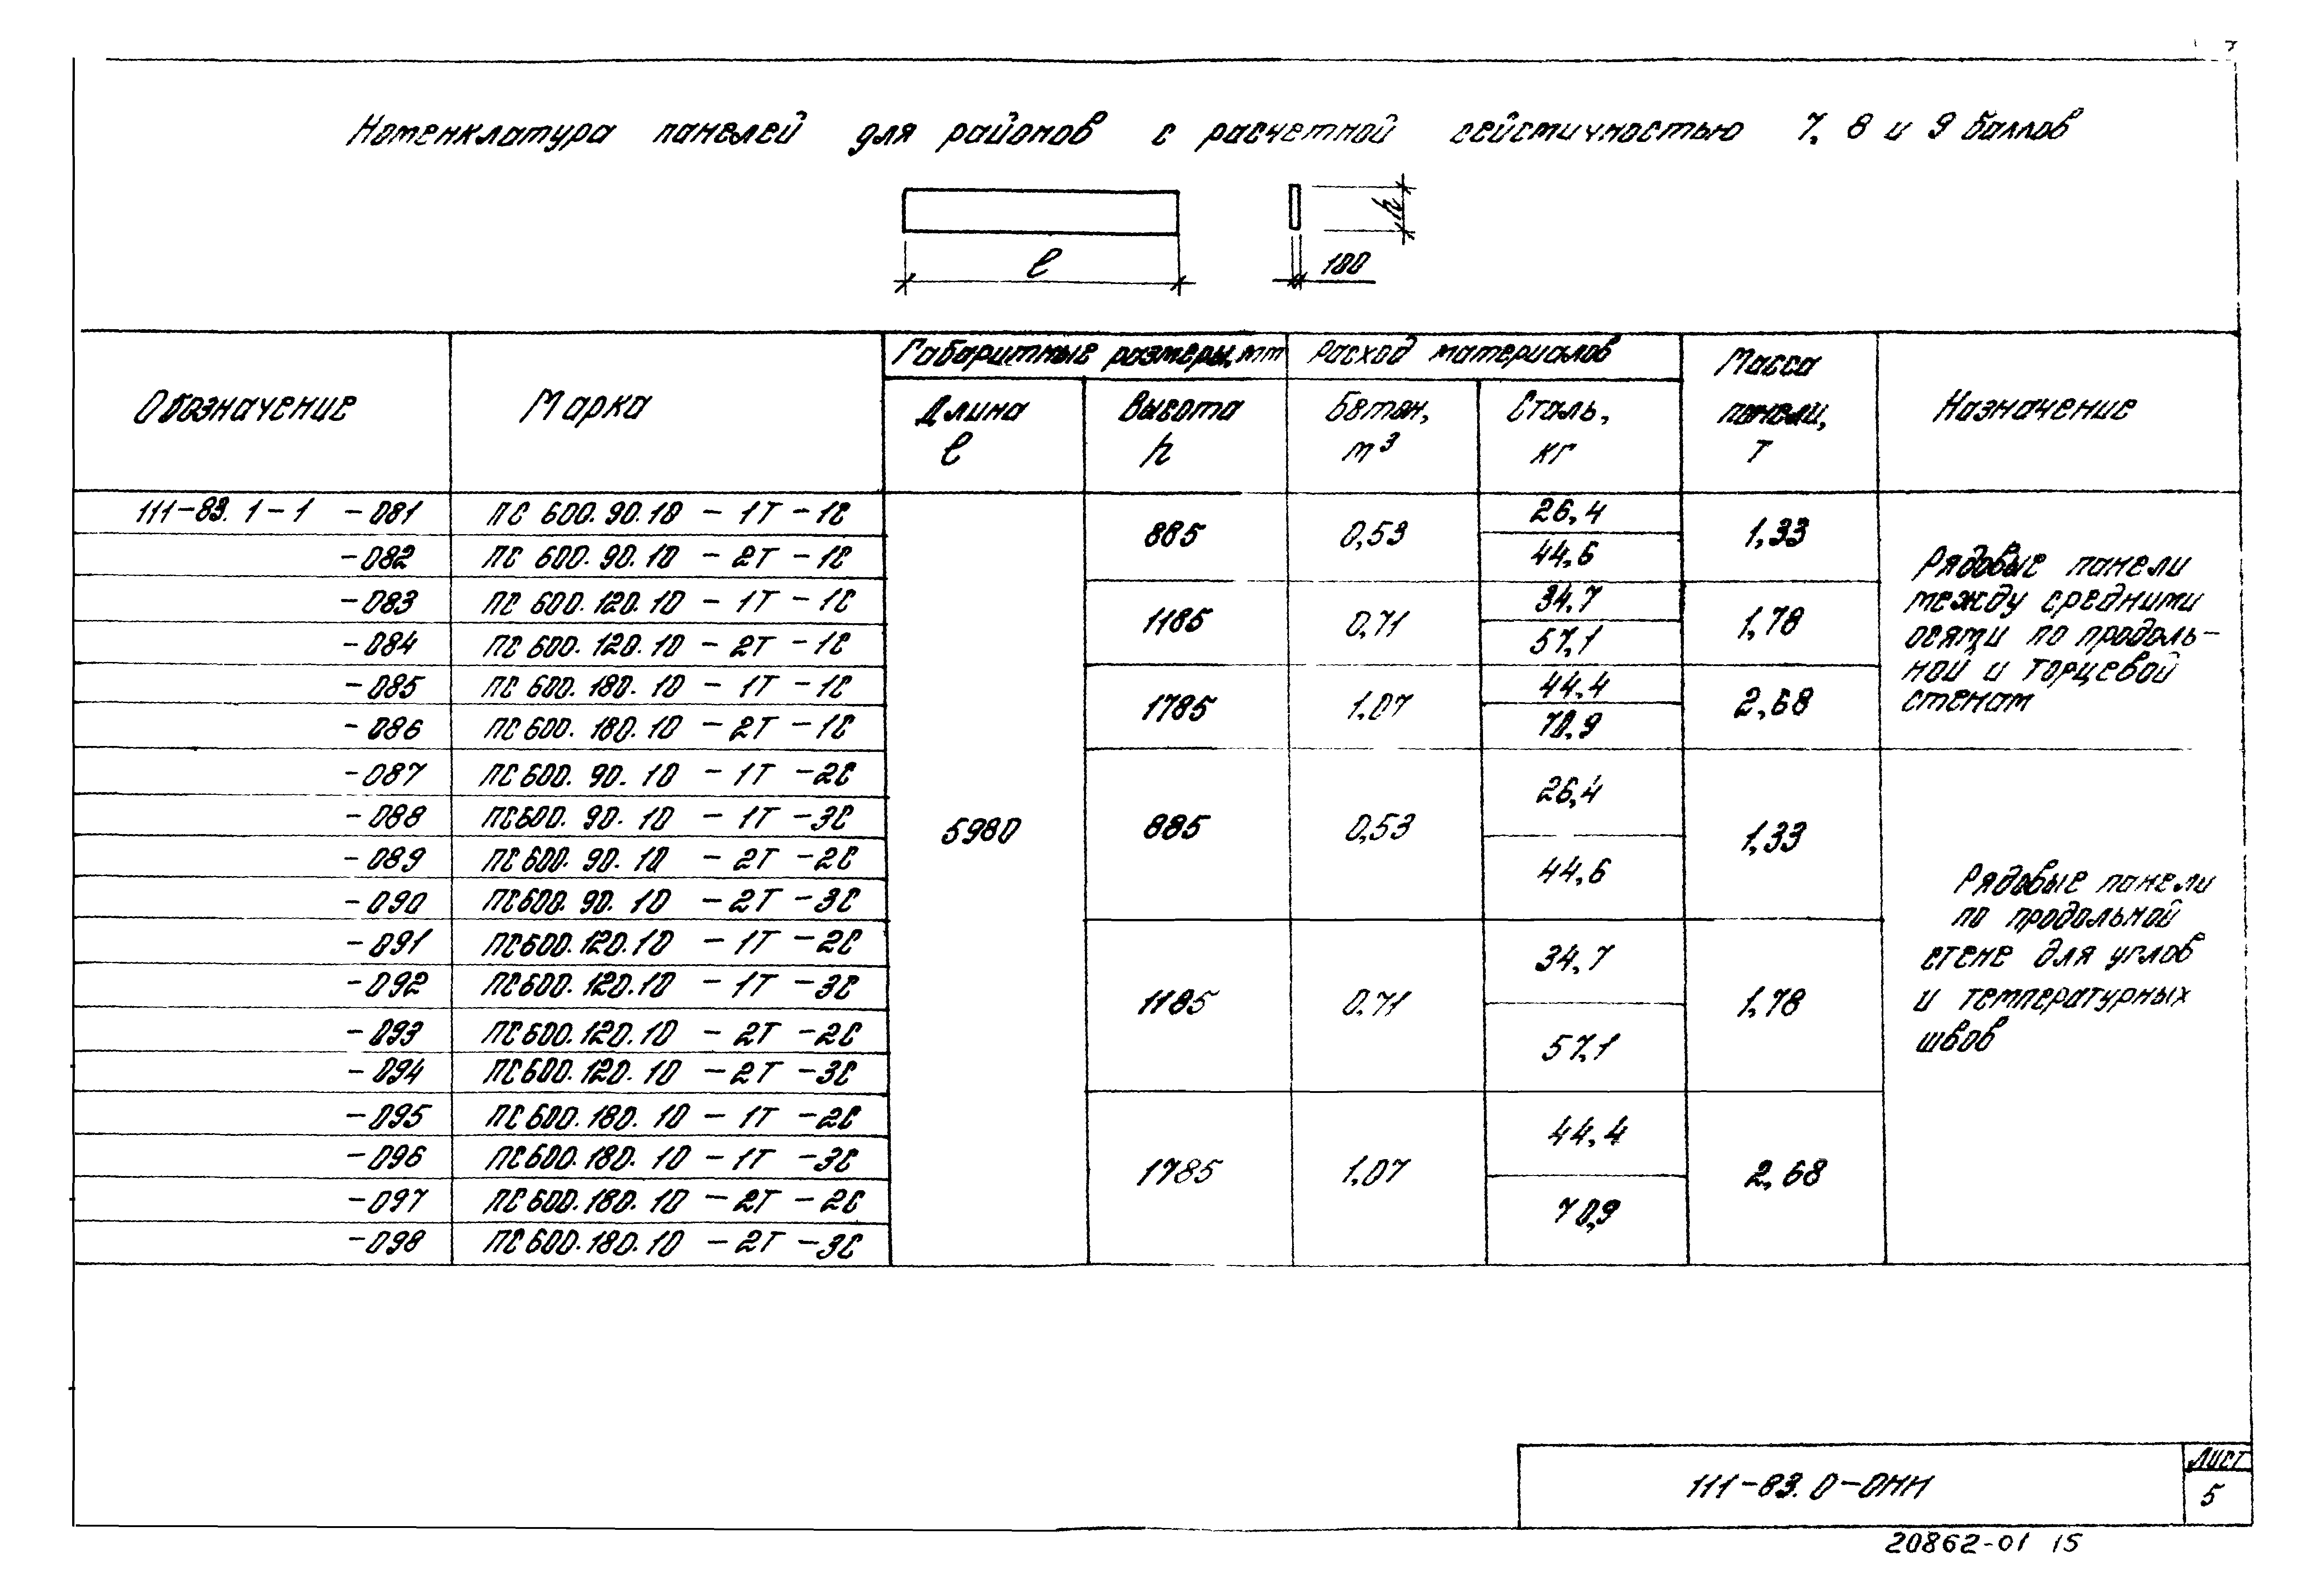 Номенклатура панелей для районов с расчетной сейсмичностью 7, 8 и 9 баллов
h
ℓ
100
Обозначение
Марка
Габаритные размеры, мм
Расход материалов
Масса панели, Т
Назначение
Длина ℓ
Высота h
Бетон, м³
Сталь, кг
111-83.1-1 -081 ПС 600.90.10 - 1Т - 1С 5980 885 0,53 26,4 1,33
-082 ПС 600.90.10 - 2Т - 1С 44,6
-083 ПС 600.120.10 - 1Т - 1С 1185 0,71 34,7 1,78
-084 ПС 600.120.10 - 2Т - 1С 57,1
-085 ПС 600.180.10 - 1Т - 1С 1785 1,07 44,4 2,68
-086 ПС 600.180.10 - 2Т - 1С 70,9
Рядовые панели
между средними
осями по продоль-
ной и торцевой
стенам
-087 ПС 600.90.10 - 1Т - 2С 885 0,53 26,4 1,33
-088 ПС 600.90.10 - 1Т - 3С
-089 ПС 600.90.10 - 2Т - 2С 44,6
-090 ПС 600.90.10 - 2Т - 3С
-091 ПС 600.120.10 - 1Т - 2С 1185 0,71 34,7 1,78
-092 ПС 600.120.10 - 1Т - 3С
-093 ПС 600.120.10 - 2Т - 2С 57,1
-094 ПС 600.120.10 - 2Т - 3С
-095 ПС 600.180.10 - 1Т - 2С 1785 1,07 44,4 2,68
-096 ПС 600.180.10 - 1Т - 3С
-097 ПС 600.180.10 - 2Т - 2С 70,9
-098 ПС 600.180.10 - 2Т - 3С
Рядовые панели
по продольной
стене для углов
и температурных
швов
111-83.0-0НИ
Лист
5
20862-01 15